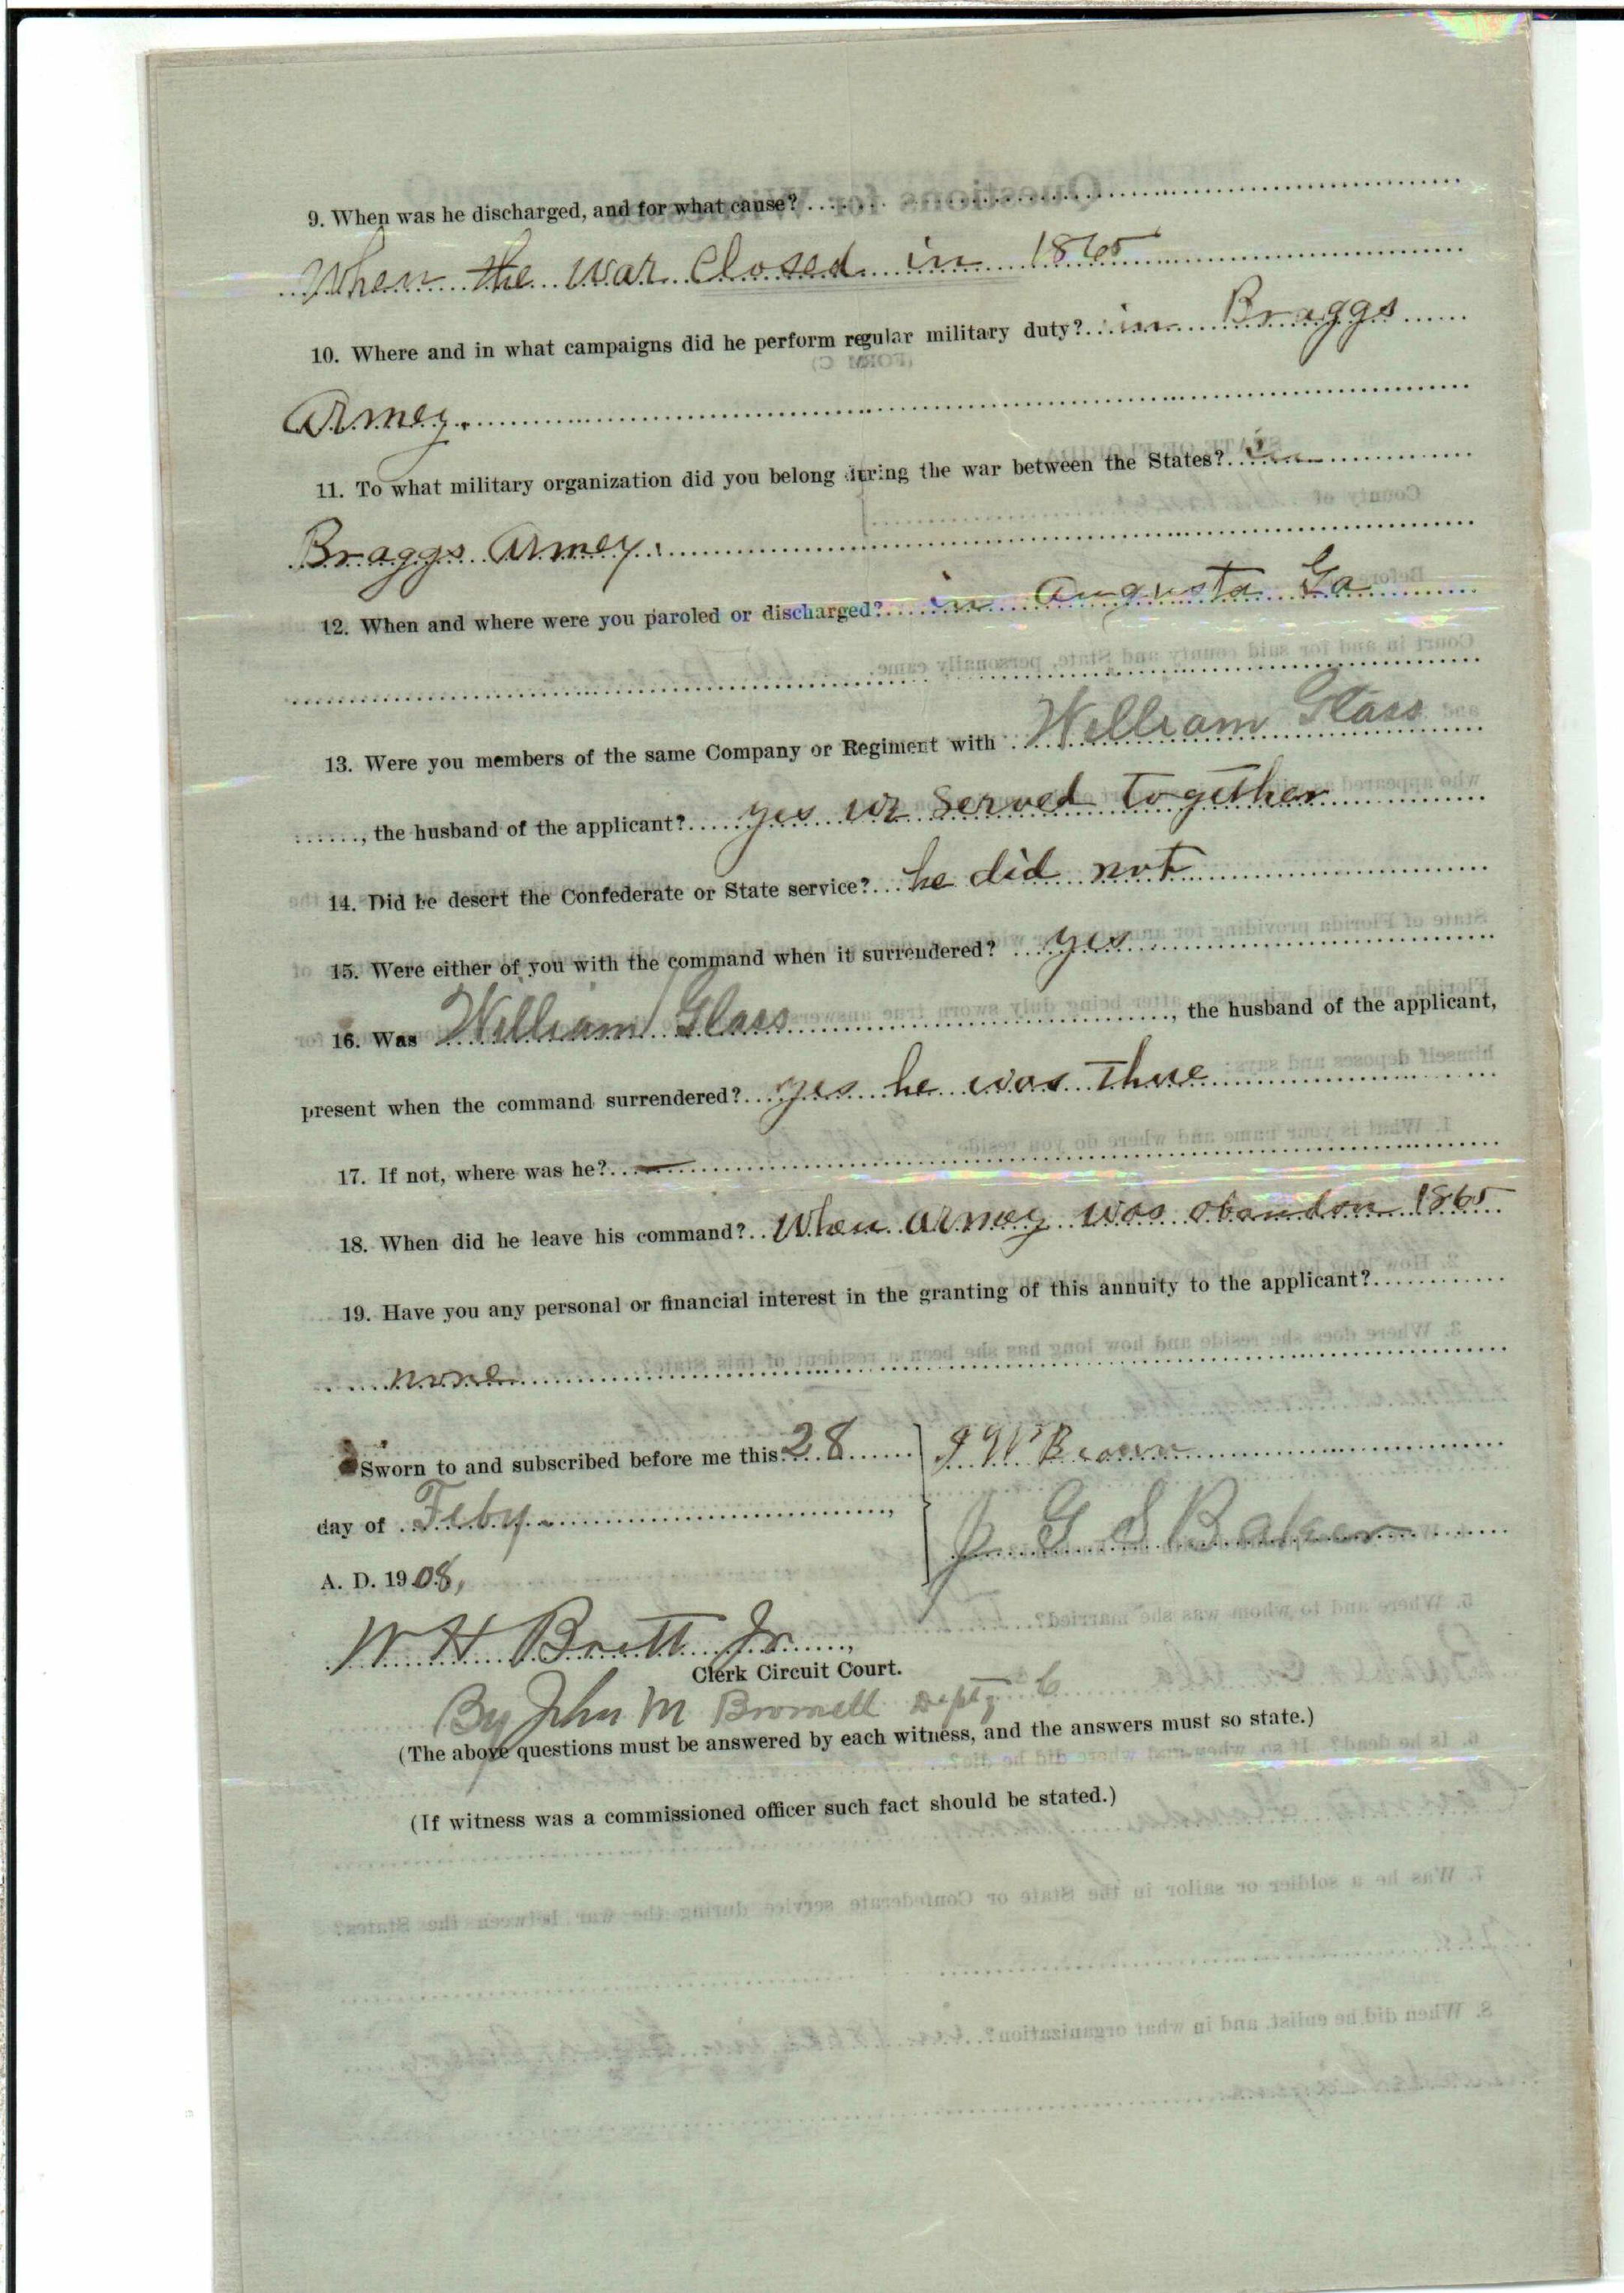 9. When was he discharged, and for what cause?
When the war closed in 1865
10. Where and in what campaigns did he perform regular military duty? in Braggs
Armey.
11. To what military organization did you belong during the war between the States? in
Braggs Armey.
12. When and where were you paroled or discharged? in Augusta Ga
13. Were you members of the same Company or Regiment with William Glass
, the husband of the applicant? yes we served together
14. Did he desert the Confederate or State service? he did not
15. Were either of you with the command when it surrendered? yes
16. Was William Glass, the husband of the applicant,
present when the command surrendered? yes he was thue
17. If not, where was he? —
18. When did he leave his command? When armey was obandon 1865
19. Have you any personal or financial interest in the granting of this annuity to the applicant?
none
Sworn to and subscribed before me this 28 J W Brown
day of Feby., J G S Baker
A. D. 1908,
W H Brett Jr,
Clerk Circuit Court.
By John M Depty C
(The above questions must be answered by each witness, and the answers must so state.)
(If witness was a commissioned officer such fact should be stated.)